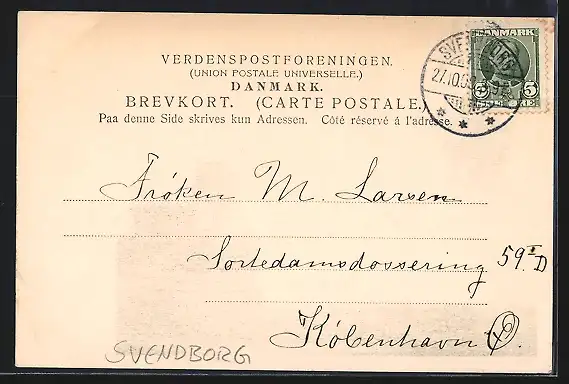 VERDENSPOSTFORENINGEN.
(UNION POSTALE UNIVERSELLE.)
DANMARK.
BREVKORT. (CARTE POSTALE.)
Paa denne Side skrives kun Adressen. Côté réservé á l'adresse.
DANMARK
5 5
SVENDBORG
27.10.
Frøken M. Larsen
Sortedamsdossering 59 I D
København Ø.
SVENDBORG